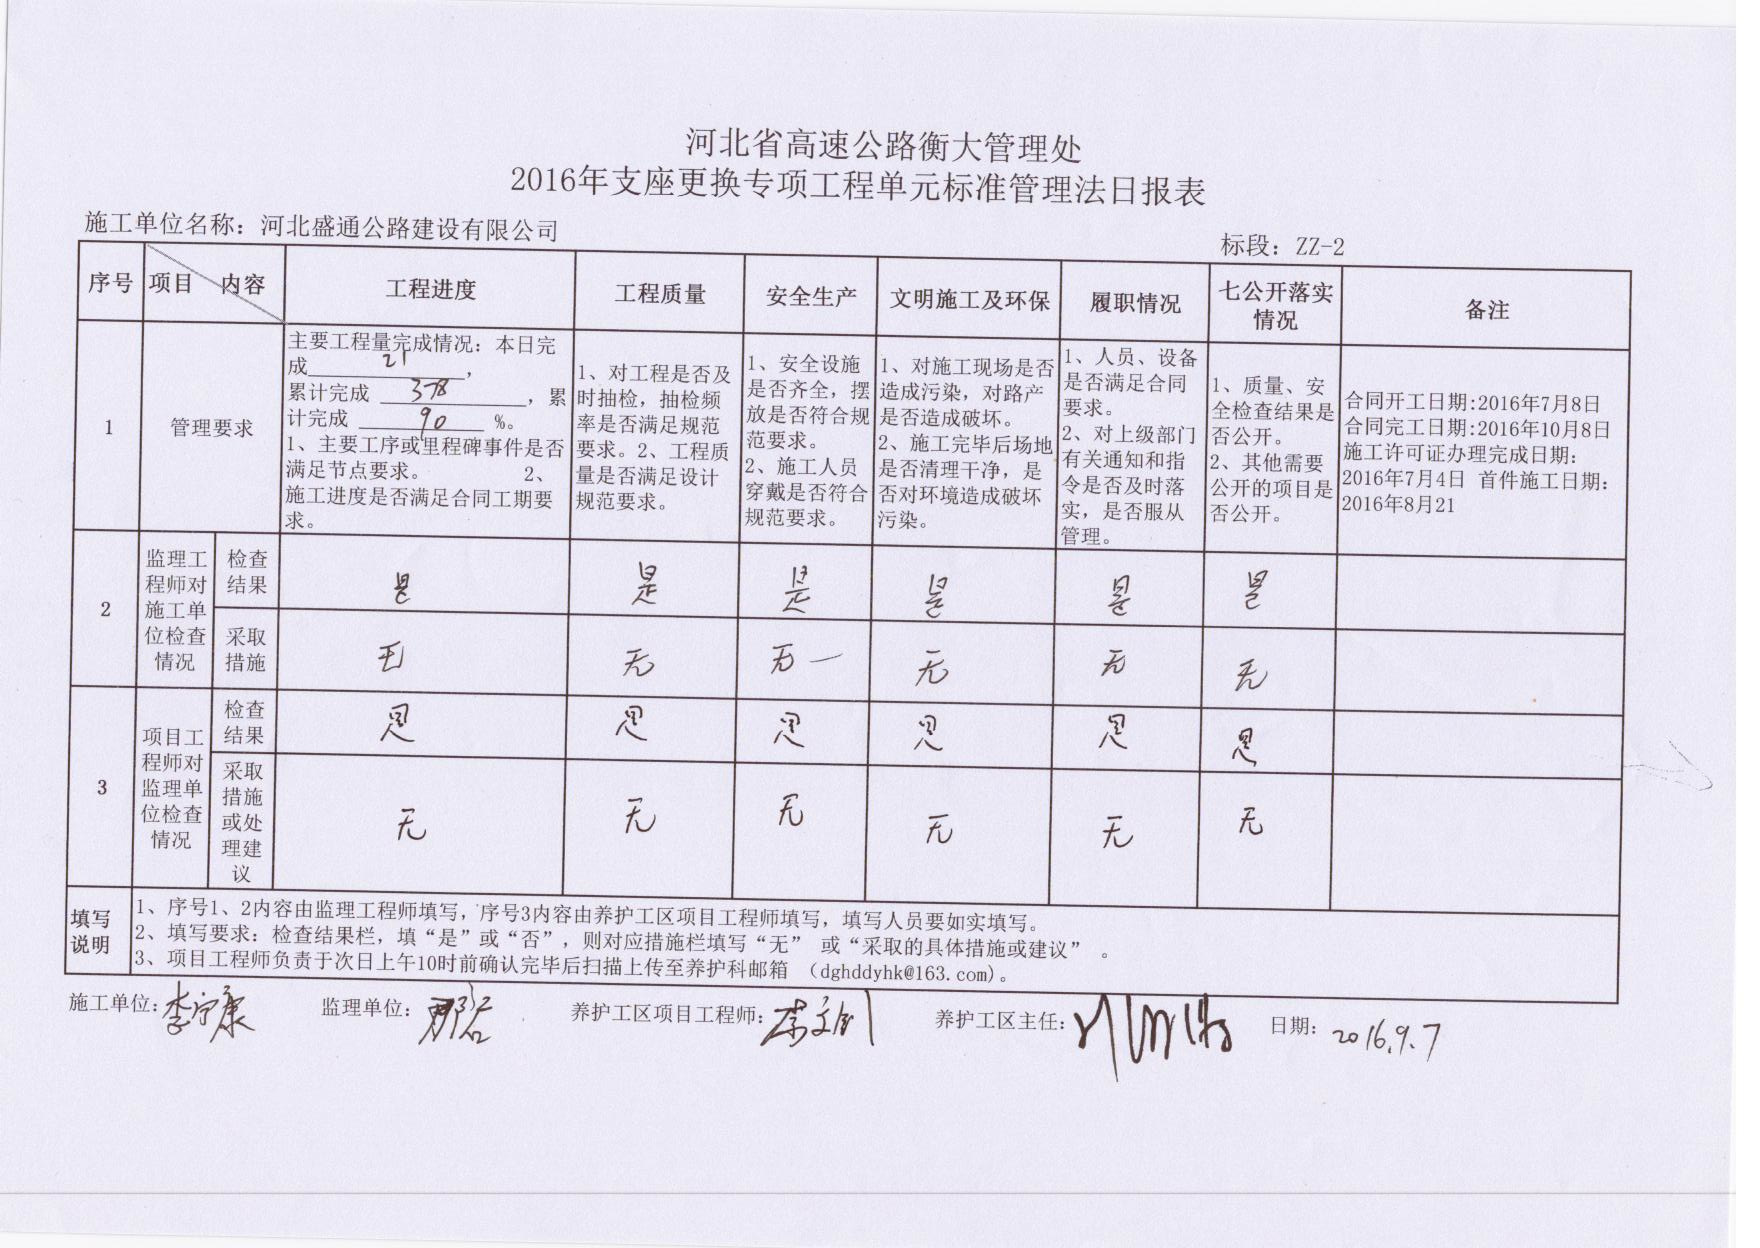 河北省高速公路衡大管理处
2016年支座更换专项工程单元标准管理法日报表
施工单位名称：河北盛通公路建设有限公司
标段：ZZ-2
序号 项目 内容 工程进度 工程质量 安全生产 文明施工及环保 履职情况 七公开落实情况 备注
1
管理要求
主要工程量完成情况：本日完
成 21，
累计完成 378，累
计完成 90 %。
1、主要工序或里程碑事件是否
满足节点要求。 2、
施工进度是否满足合同工期要
求。
1、对工程是否及
时抽检，抽检频
率是否满足规范
要求。2、工程质
量是否满足设计
规范要求。
1、安全设施
是否齐全，摆
放是否符合规
范要求。
2、施工人员
穿戴是否符合
规范要求。
1、对施工现场是否
造成污染，对路产
是否造成破坏。
2、施工完毕后场地
是否清理干净，是
否对环境造成破坏
污染。
1、人员、设备
是否满足合同
要求。
2、对上级部门
有关通知和指
令是否及时落
实，是否服从
管理。
1、质量、安
全检查结果是
否公开。
2、其他需要
公开的项目是
否公开。
合同开工日期:2016年7月8日
合同完工日期:2016年10月8日
施工许可证办理完成日期：
2016年7月4日 首件施工日期：
2016年8月21
2
监理工
程师对
施工单
位检查
情况
检查
结果
是 是 是 是 是 是
采取
措施
无 无 无 无 无 无
3
项目工
程师对
监理单
位检查
情况
检查
结果
是 是 是 是 是 是
采取
措施
或处
理建
议
无 无 无 无 无 无
填写
说明
1、序号1、2内容由监理工程师填写，序号3内容由养护工区项目工程师填写，填写人员要如实填写。
2、填写要求：检查结果栏，填“是”或“否”，则对应措施栏填写“无” 或“采取的具体措施或建议” 。
3、项目工程师负责于次日上午10时前确认完毕后扫描上传至养护科邮箱 （dghddyhk@163.com)。
施工单位：李宁康 监理单位： 养护工区项目工程师： 养护工区主任： 日期：2016.9.7